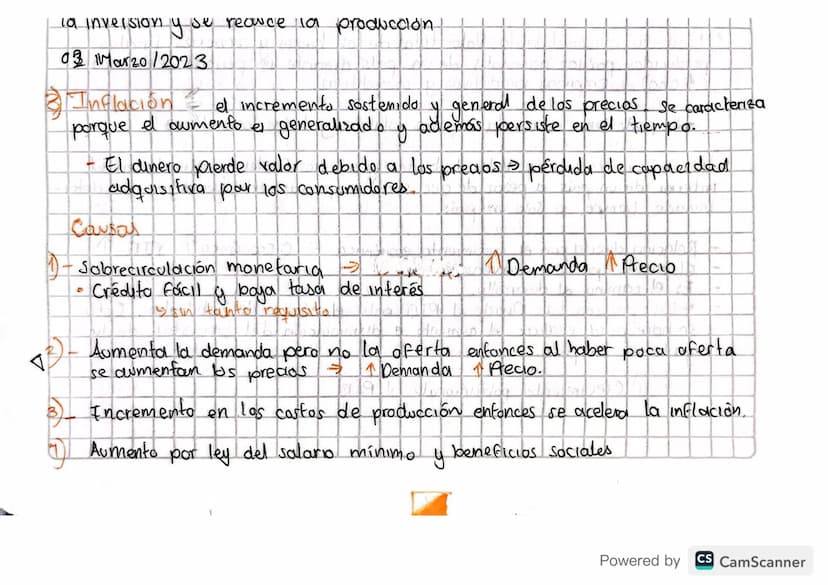 la inversión y se reduce la producción
03 Marzo/2023
3) Inflación = el incremento sostenido y general de los precios. Se caracteriza
porque el aumento es generalizado y además persiste en el tiempo.
- El dinero pierde valor debido a los precios → pérdida de capacidad
adquisitiva para los consumidores.
Causas
1)- Sobrecirculación monetaria → ↑ Demanda ↑ Precio
• Crédito fácil y baja tasa de interés
↳ sin tanto requisito
2)- Aumenta la demanda pero no la oferta entonces al haber poca oferta
se aumentan los precios → ↑ Demanda ↑ Precio.
3)- Incremento en los costos de producción entonces se acelera la inflación.
Aumento por ley del salario mínimo y beneficios sociales
Powered by CS CamScanner